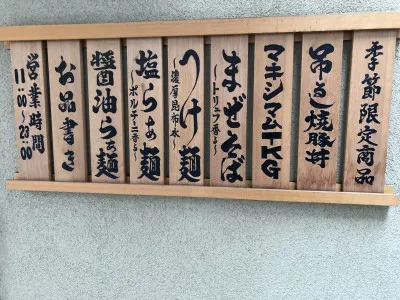 営業時間
11:00~23:00
お品書き
醤油らぁ麺
塩らぁ麺
ポルチーニ香る
つけ麺
~濃厚昆布水~
まぜそば
~トリュフ香る~
マキシマムTKG
吊るし焼豚丼
季節限定商品